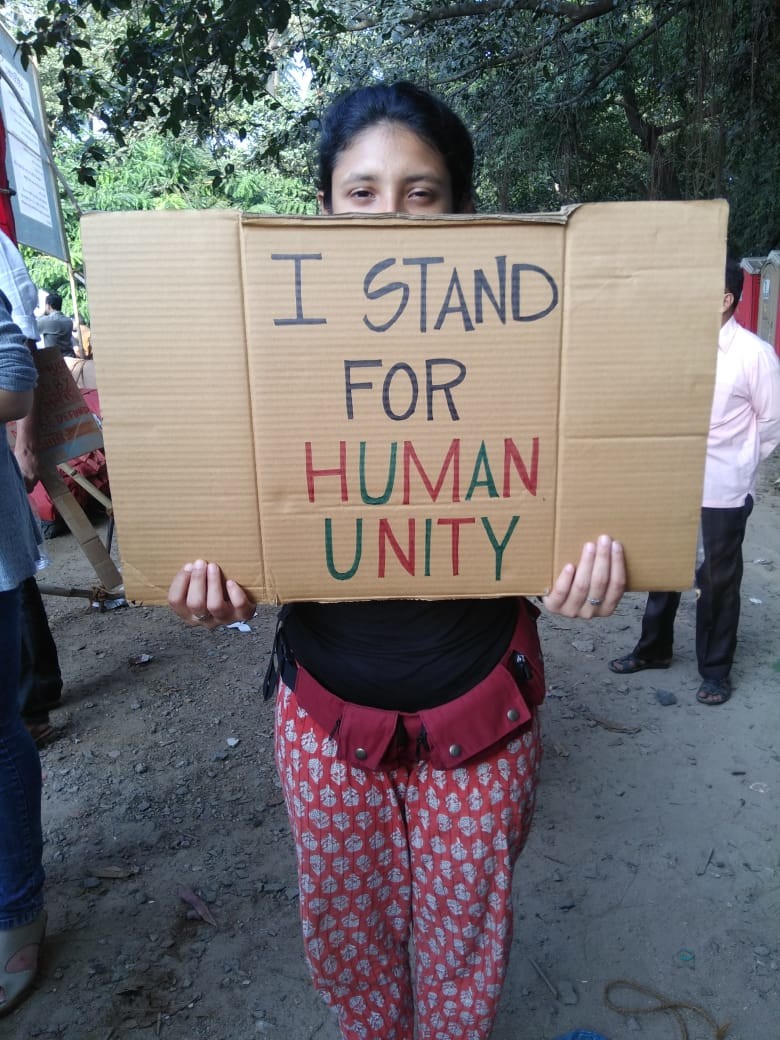 I STAND
FOR
HUMAN
UNITY